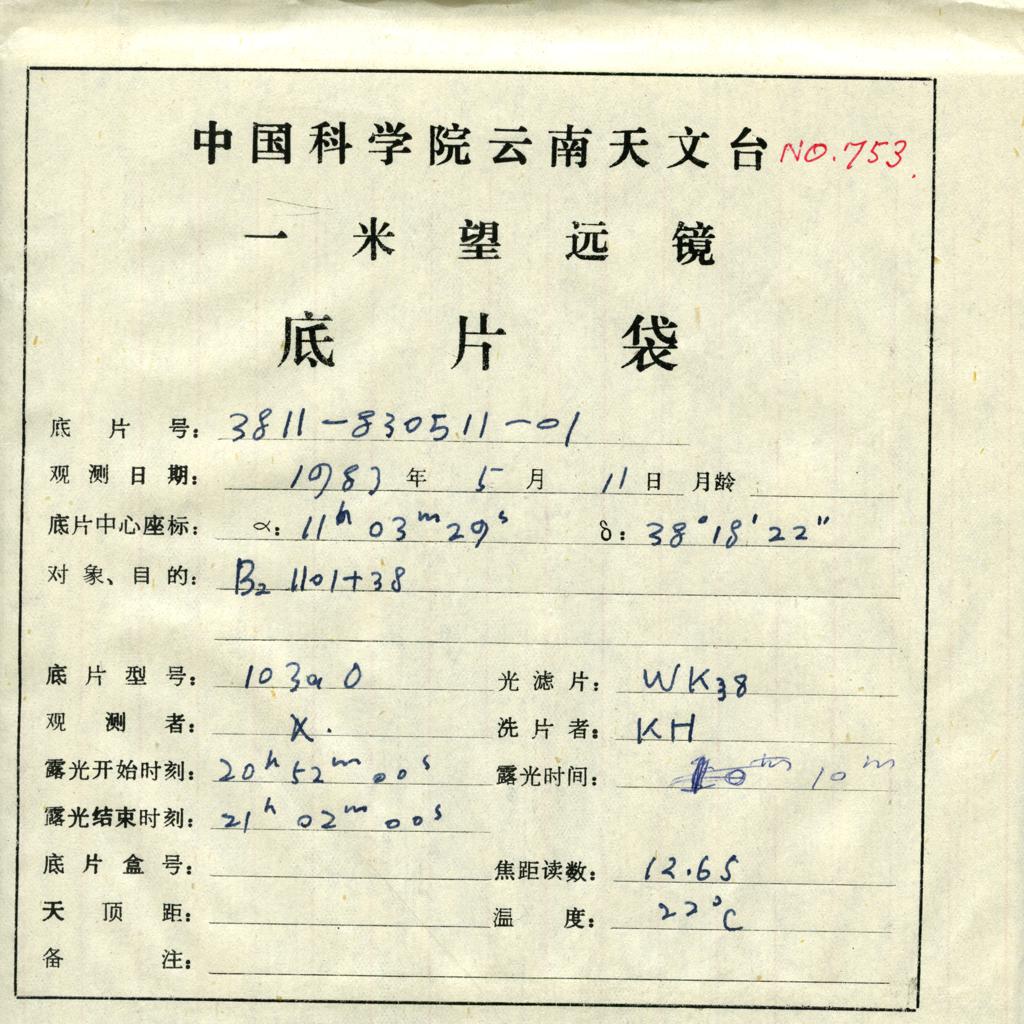 中国科学院云南天文台 NO.753.
一米望远镜
底片袋
底片号: 3811-830511-01
观测日期: 1983年5月11日 月龄
底片中心座标: α: 11h 03m 29s δ: 38°18'22"
对象、目的: B2 1101+38
底片型号: 103aO 光滤片: WK38
观测者: X. 洗片者: KH
露光开始时刻: 20h 52m 00s 露光时间: 10m
露光结束时刻: 21h 02m 00s
底片盒号: 焦距读数: 12.65
天顶距: 温度: 22°C
备注: